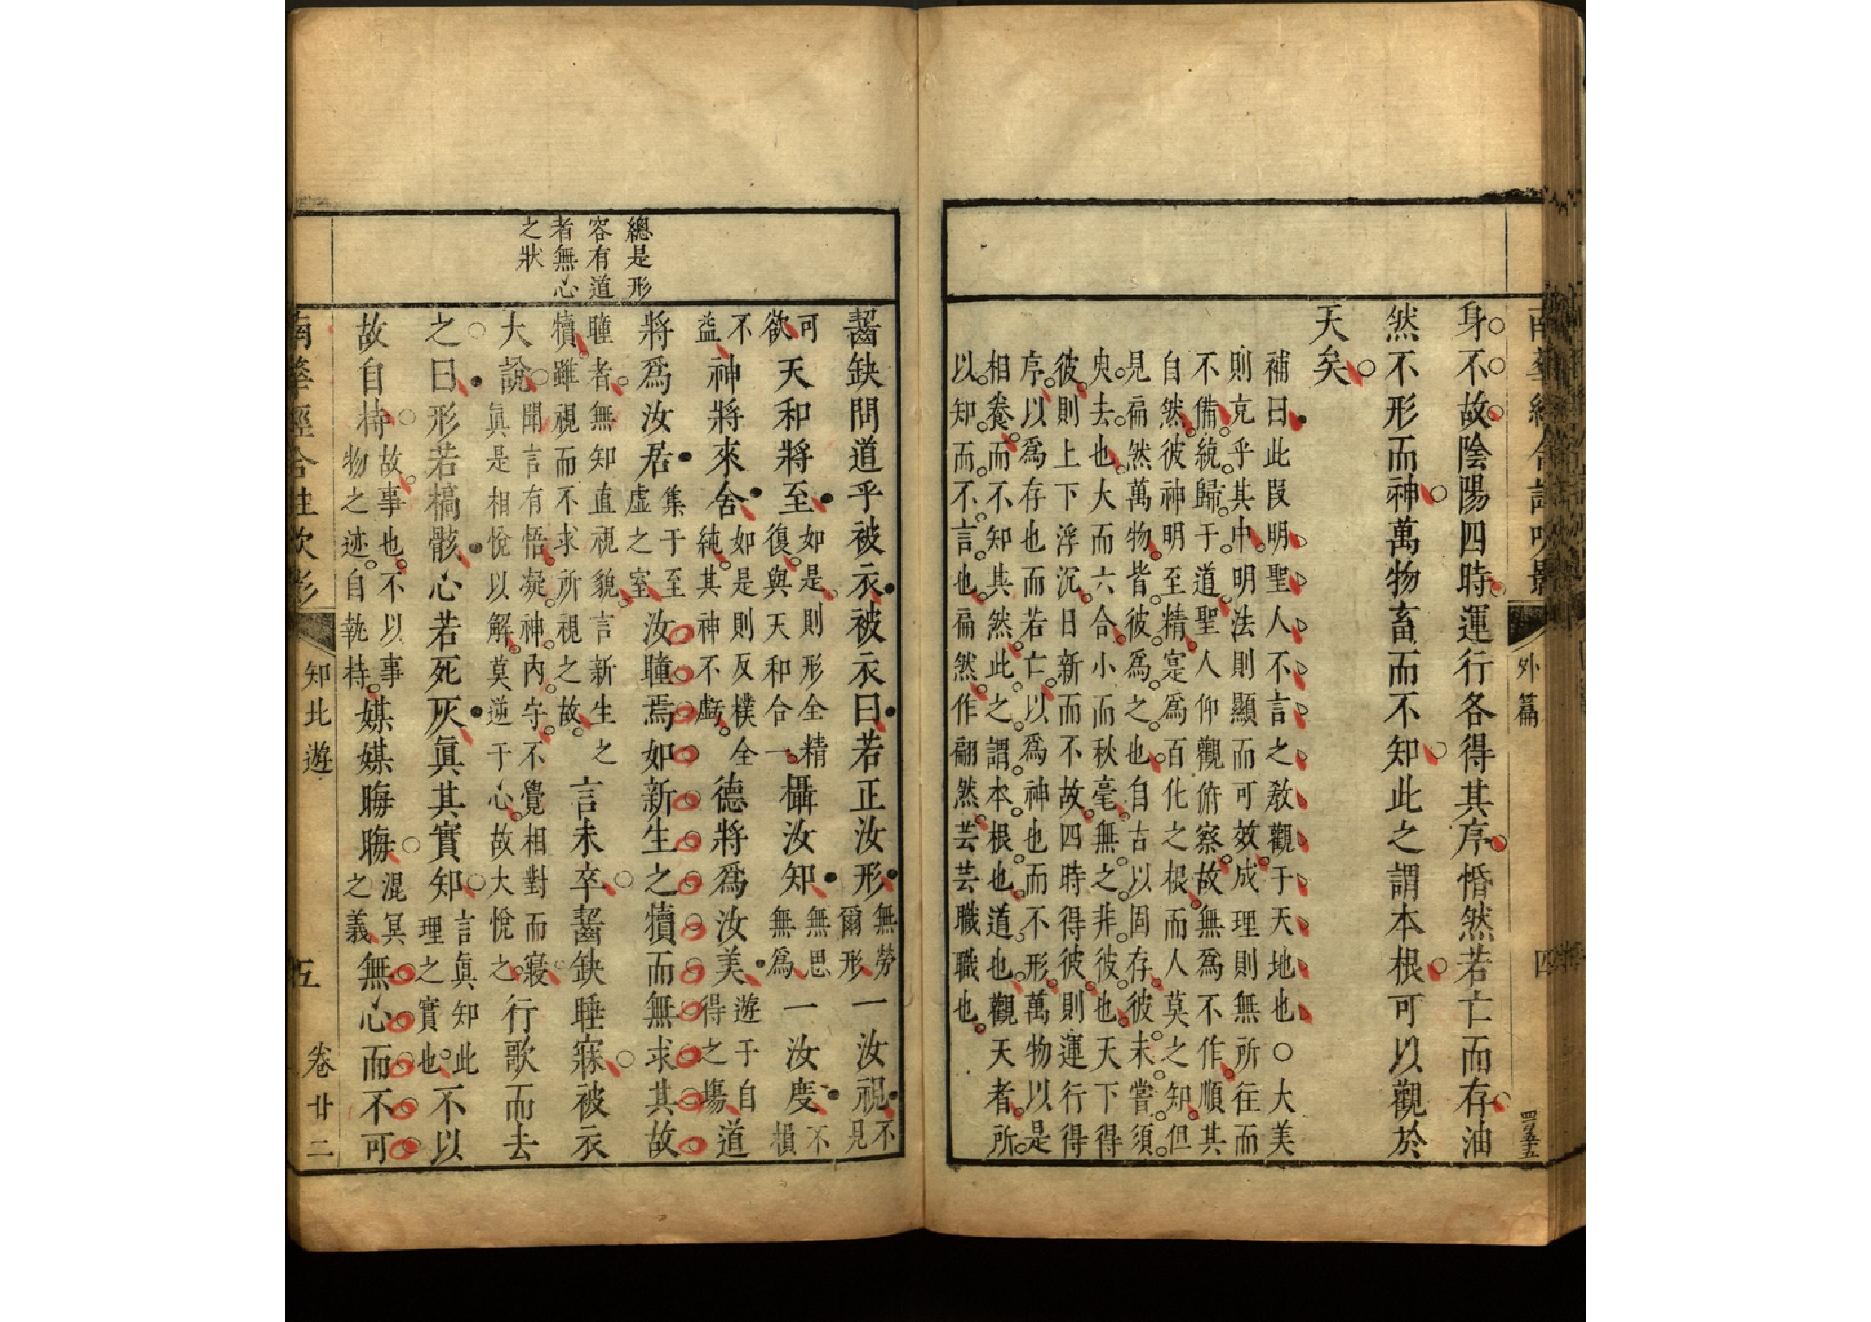 外篇
四
身不故陰陽四時運行各得其序惛然若亡而存油
然不形而神萬物畜而不知此之謂本根可以觀於
天矣
補曰此段明聖人不言之教觀于天地也○大美
則克乎其中明法則顯而可效成理則無所往而
不備統歸于道聖人仰觀俯察故無為不作順其
自然彼神明至精寔為百化之根而人莫之知但
見扁然萬物皆彼為之也自古以固存彼未嘗須
臾去也大而六合小而秋毫無之非彼也天下得
彼則上下浮沉日新而不故四時得彼則運行得
序以為存也而若亡以為神也而不形萬物以是
相養而不知其然此之謂本根也道也觀天者所
以知而不言也扁然作翩然芸芸職職也
總是形
容有道
者無心
之狀
齧缺問道乎被衣被衣曰若正汝形無勞爾形一汝視不見
可欲天和將至如是則形全精復與天和合一攝汝知無思無為一汝度不損
不益神將來舍如是則反樸全純其神不虧德將為汝美遊于自得之場道
將爲汝居集于至虛之室汝瞳焉如新生之犢而無求其故
瞳者無知直視貌言新生之犢雖視而不求所視之故言未卒齧缺睡寐被衣
大說聞言有悟凝神內守不覺相對而寢真是相悅以解莫逆于心故大悅之行歌而去
之曰形若槁骸心若死灰真其實知言真知此理之實也不以
故自持故事也不以事物之迹自執持媒媒晦晦混冥之義無心而不可
知北遊
五
卷廿二